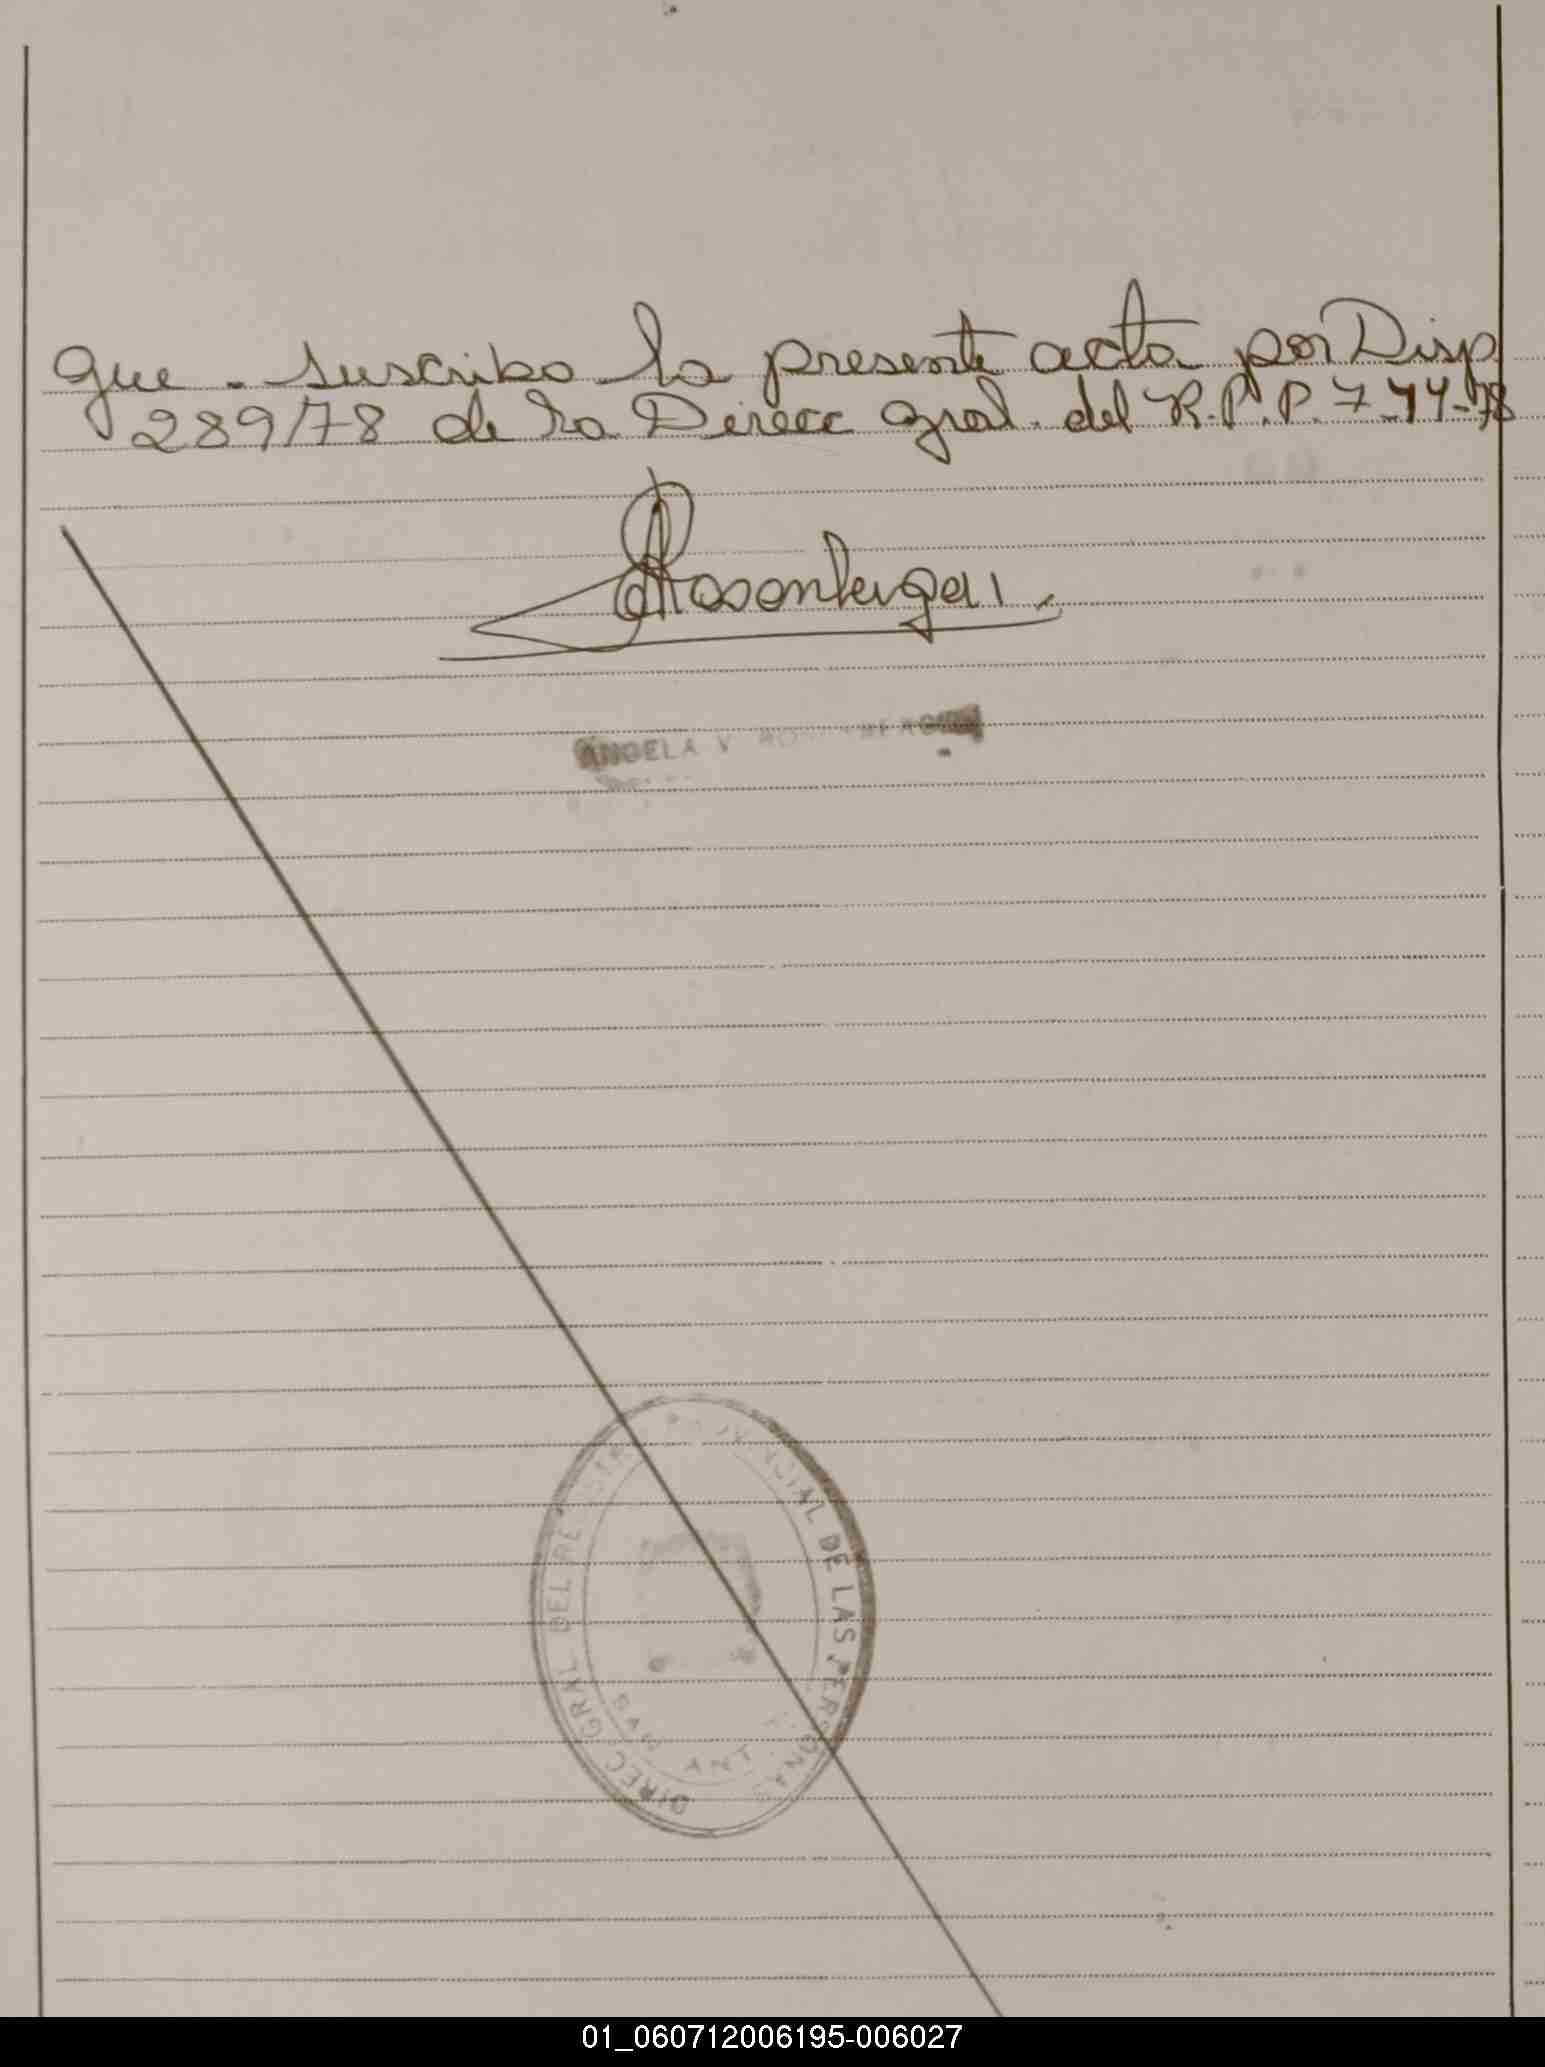 que - suscribo la presente acta por Disp
289/78 de la Direcc gral. del R.P.P. 7-44-78
ANGELA V
DIREC GRAL DEL REGISTRO PROVINCIAL DE LAS PERSONAS
01_060712006195-006027